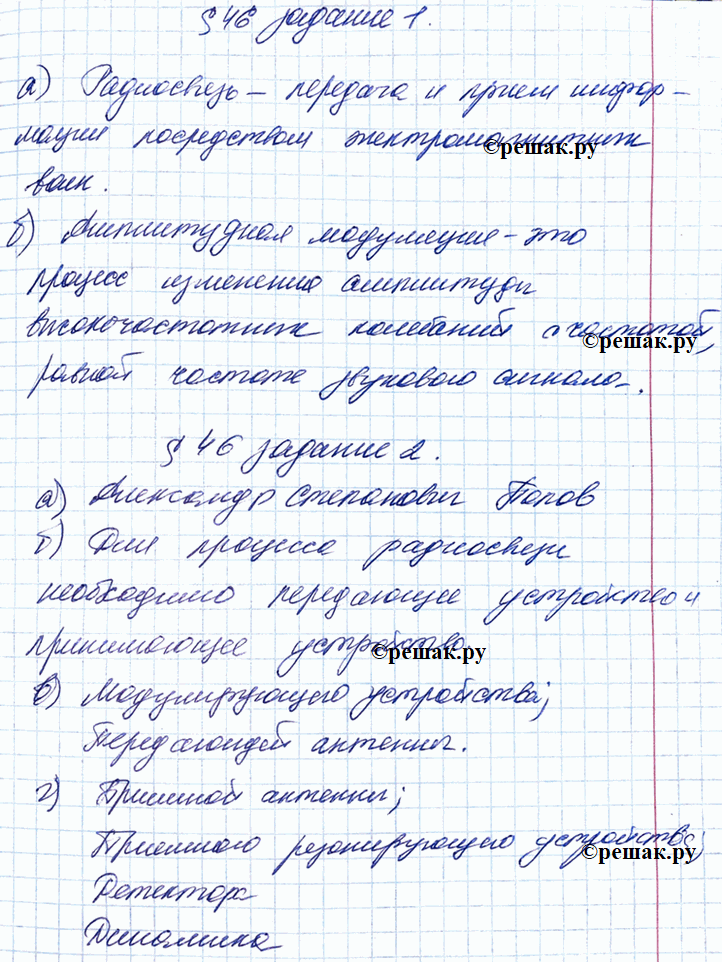 § 46 задание 1.
а) Радиосвязь – передача и прием инфор-
мации посредством электромагнитных
©решак.ру
волн.
б) Амплитудная модуляция – это
процесс изменения амплитуды
высокочастотных колебаний с частотой,
©решак.ру
равной частоте звукового сигнала.
§ 46 задание 2.
а) Александр Степанович Попов
б) Для процесса радиосвязи
необходимо передающее устройство и
принимающее устройство
©решак.ру
в) Модулирующего устройства;
Передающей антенны.
г) Приемной антенны;
Приемного резонирующего устройства;
©решак.ру
Детектора
Динамика